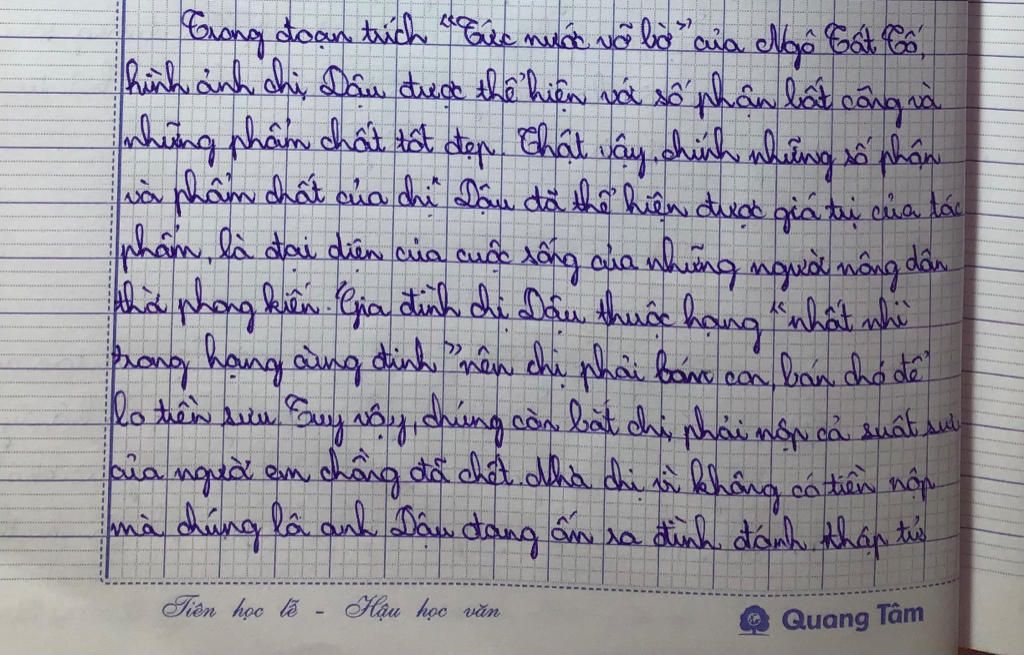 Trong đoạn trích "Tức nước vỡ bờ" của Ngô Tất Tố,
hình ảnh chị Dậu được thể hiện với số phận bất công và
những phẩm chất tốt đẹp. Thật vậy, chính những số phận
và phẩm chất của chị Dậu đã thể hiện được giá trị của tác
phẩm, là đại diện của cuộc sống của những người nông dân
thời phong kiến. Gia đình chị Dậu thuộc hạng "nhất nhì
trong hạng cùng đinh" nên chị phải bán con, bán chó để
lo tiền sưu. Tuy vậy, chúng còn bắt chị phải nộp cả suất sưu
của người em chồng đã chết. Nhà chị vì không có tiền nộp
mà chúng lôi anh Dậu đang ốm ra đình đánh thập tử
Tiên học lễ - Hậu học văn
Quang Tâm